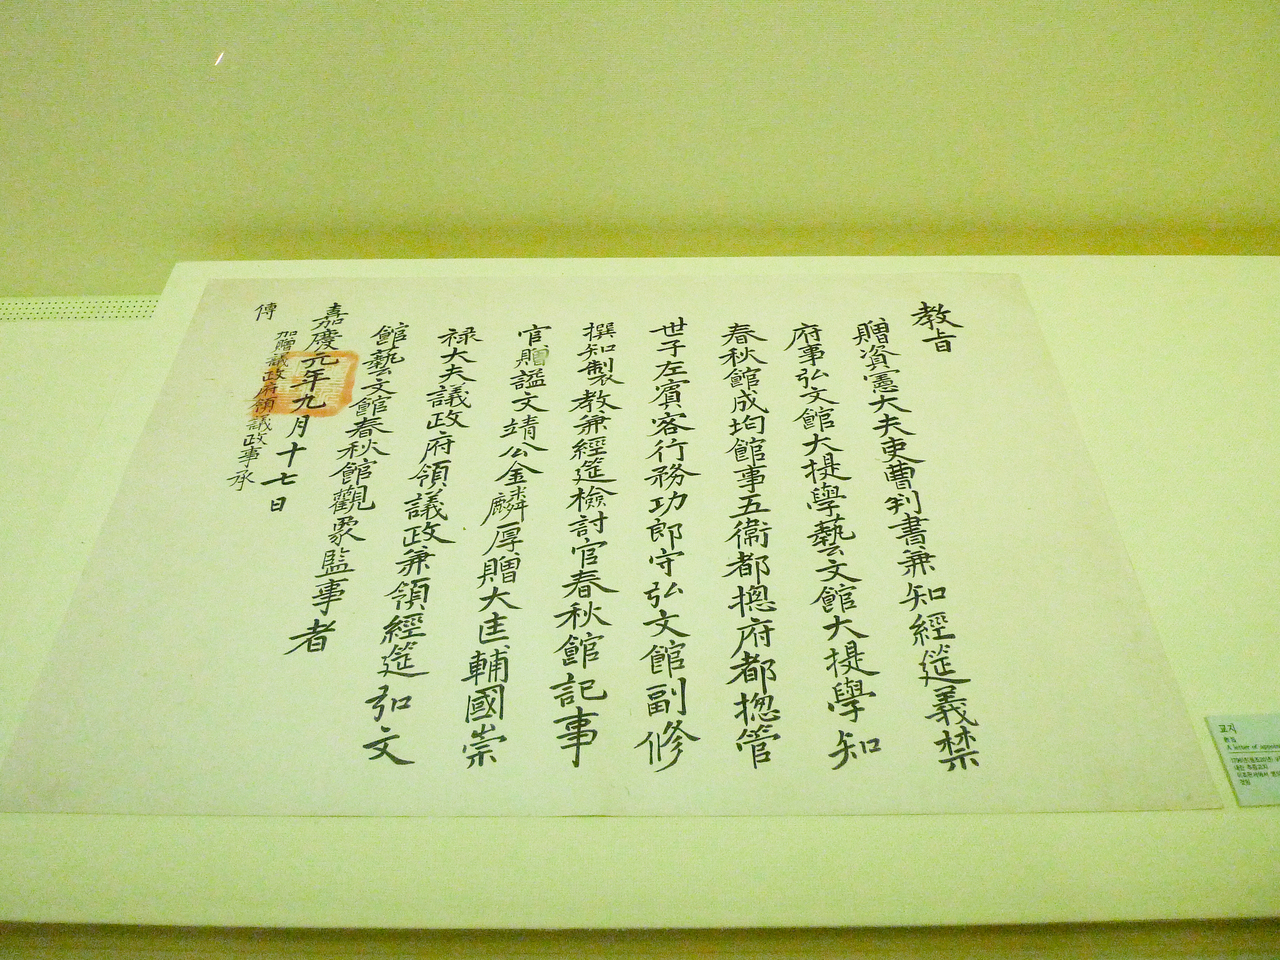 教旨
贈資憲大夫吏曹判書兼知經筵義禁
府事弘文館大提學藝文館大提學知
春秋館成均館事五衛都摠府都摠管
世子左賓客行務功郎守弘文館副修
撰知製教兼經筵檢討官春秋館記事
官贈謚文靖公金麟厚贈大匡輔國崇
禄大夫議政府領議政兼領經筵弘文
館藝文館春秋館觀象監事者
嘉慶元年九月十七日
加贈議政府領議政事承
傳
교지
教旨
A letter of